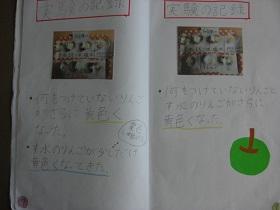 実験の記録
・何もつけていないりんご
がさらに黄色く
なった。
・す水のりんごが少しだけ
黄色くなってきた。
実験の記録
・何もつけていないりんごと
す水のりんごがさらに
黄色くなった。